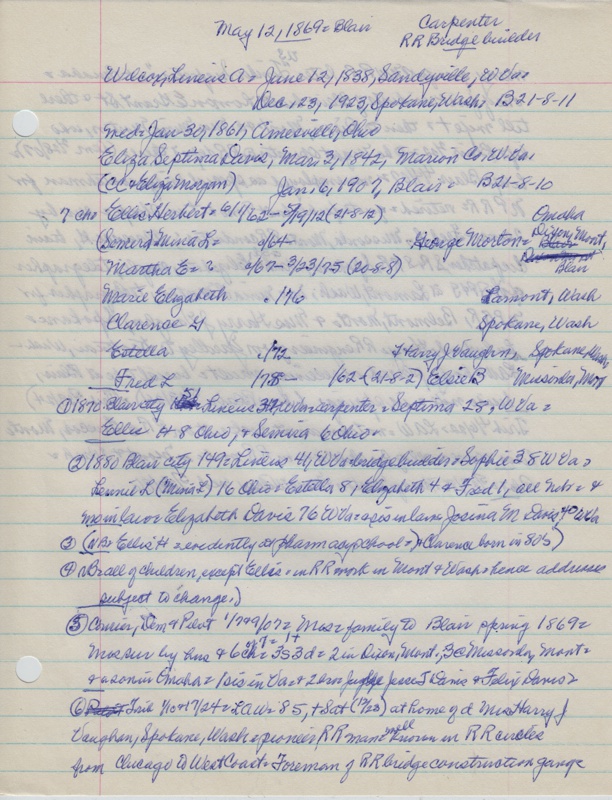 May 12, 1869 = Blair
Carpenter
RR Bridge builder
Wilcox, Lineius A = June 12, 1838, Sandyville, W Va =
Dec 23, 1923, Spokane, Wash B21-8-11
md = Jan 30, 1861, Amesville, Ohio
Eliza Septima Davis, Mar 3, 1842, Marion Co, W Va
(CC & Eliza Morgan) Jan 6, 1907, Blair = B21-8-10
7 ch = Ellis Herbert = 6/1/62 - 7/9/12 (21-8-12) Omaha
(Somers) Minia L = 2/64 - George Morton = Dixon, Mont,
Martha E = ? 2/67 - 3/23/75 (20-8-8) Blair
Marie Elizabeth 176 Lamont, Wash
Clarence G Spokane, Wash
Estella 172 Harry J Vaughn, Spokane, Wash
Fred L 178 - 162 - (21-8-2) Elsie B Missoula, Mon
① 1870 Blair city Lineius 34, W Va = carpenter = Septima 28, W Va =
Ellis H 8 Ohio, + 6 Ohio =
② 1880 Blair city 149 = Lineius 41, W Va = bridge builder = Sophie 38 W Va =
Lennie L (Minia L) 16 Ohio = Estella 8, Elizabeth 4 & Fred 1, all Neb = &
Elizabeth Davis 76 W Va = sis in law Josina M Davis 40 W Va
③ (NB = Ellis H = evidently at pharmacy school = Clarence born in 80s)
④ NB all of children, except Ellis = in RR work in Mont & Wash = hence addresses
subject to change.)
⑤ Courier, Dem & Pilot 1/7 & 9/07 = Mos = family to Blair spring 1869 =
Mos sur by hus & 6 ch = 3s 3d = 2 in Dixon, Mont, 3 @ Missoula, Mont =
& a son in Omaha = 1 sis in Va & 2 bro Jesse T Davis & Felix Davis =
⑥ Trib 1/10 & 17/24 = LAW = 85, + Sat (12/23) at home of d Mrs Harry J
Vaughan, Spokane, Wash = pioneer RR man = well known in RR circles
from Chicago to West Coast = Foreman of RR bridge construction gangs